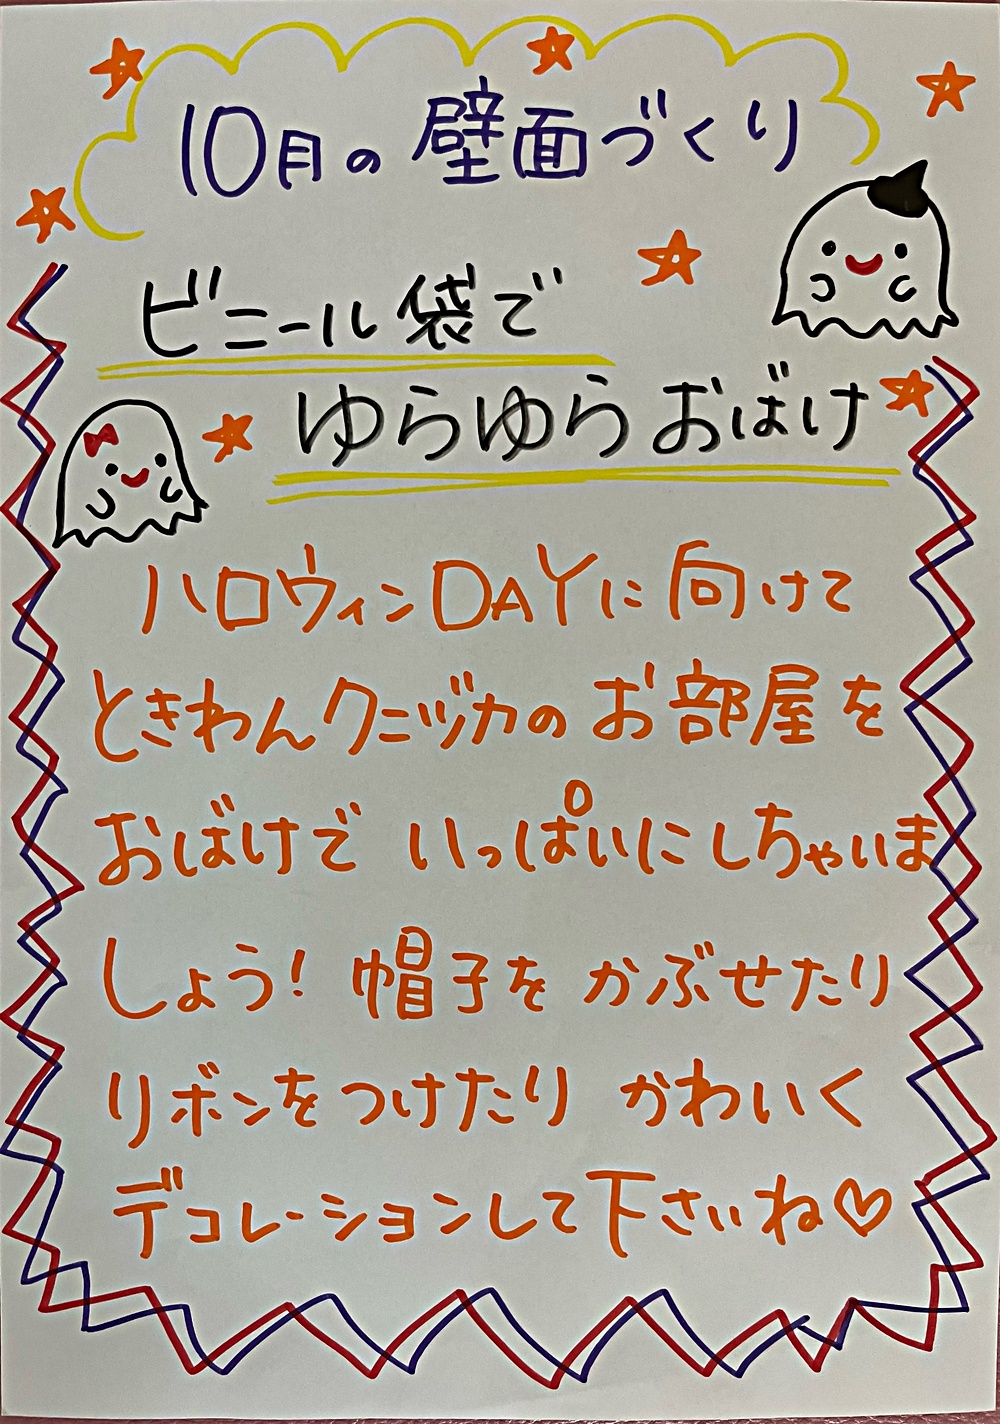 10月の壁面づくり
ビニール袋で
ゆらゆらおばけ
ハロウィンDAYに向けて
ときわんクニヅカのお部屋を
おばけで いっぱいにしちゃいま
しょう! 帽子を かぶせたり
リボンをつけたり かわいく
デコレーションして下さいね♡